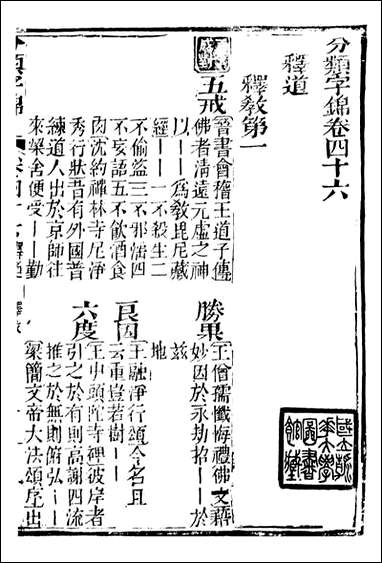 分類字錦卷四十六
釋道
釋教第一
五戒
晉書會稽王道子傳
佛者清遠元虛之神
以——爲教毘尼藏
經——一不殺生二
不偷盜三不邪淫四
不妄語五不飲酒食
肉沈約禪林寺尼淨
秀行狀昔有外國普
練道人出於京師往
來梁舍便受——勤
勝果
王僧孺懺悔禮佛文藉
妙因於永劫招——於
茲
地
良因
王融淨行頌今名且
云重豈若樹——
六度
王屮頭陀寺碑彼岸者
引之於有則高謝四流
推之於無則俯弘——
梁簡文帝大法頌序出